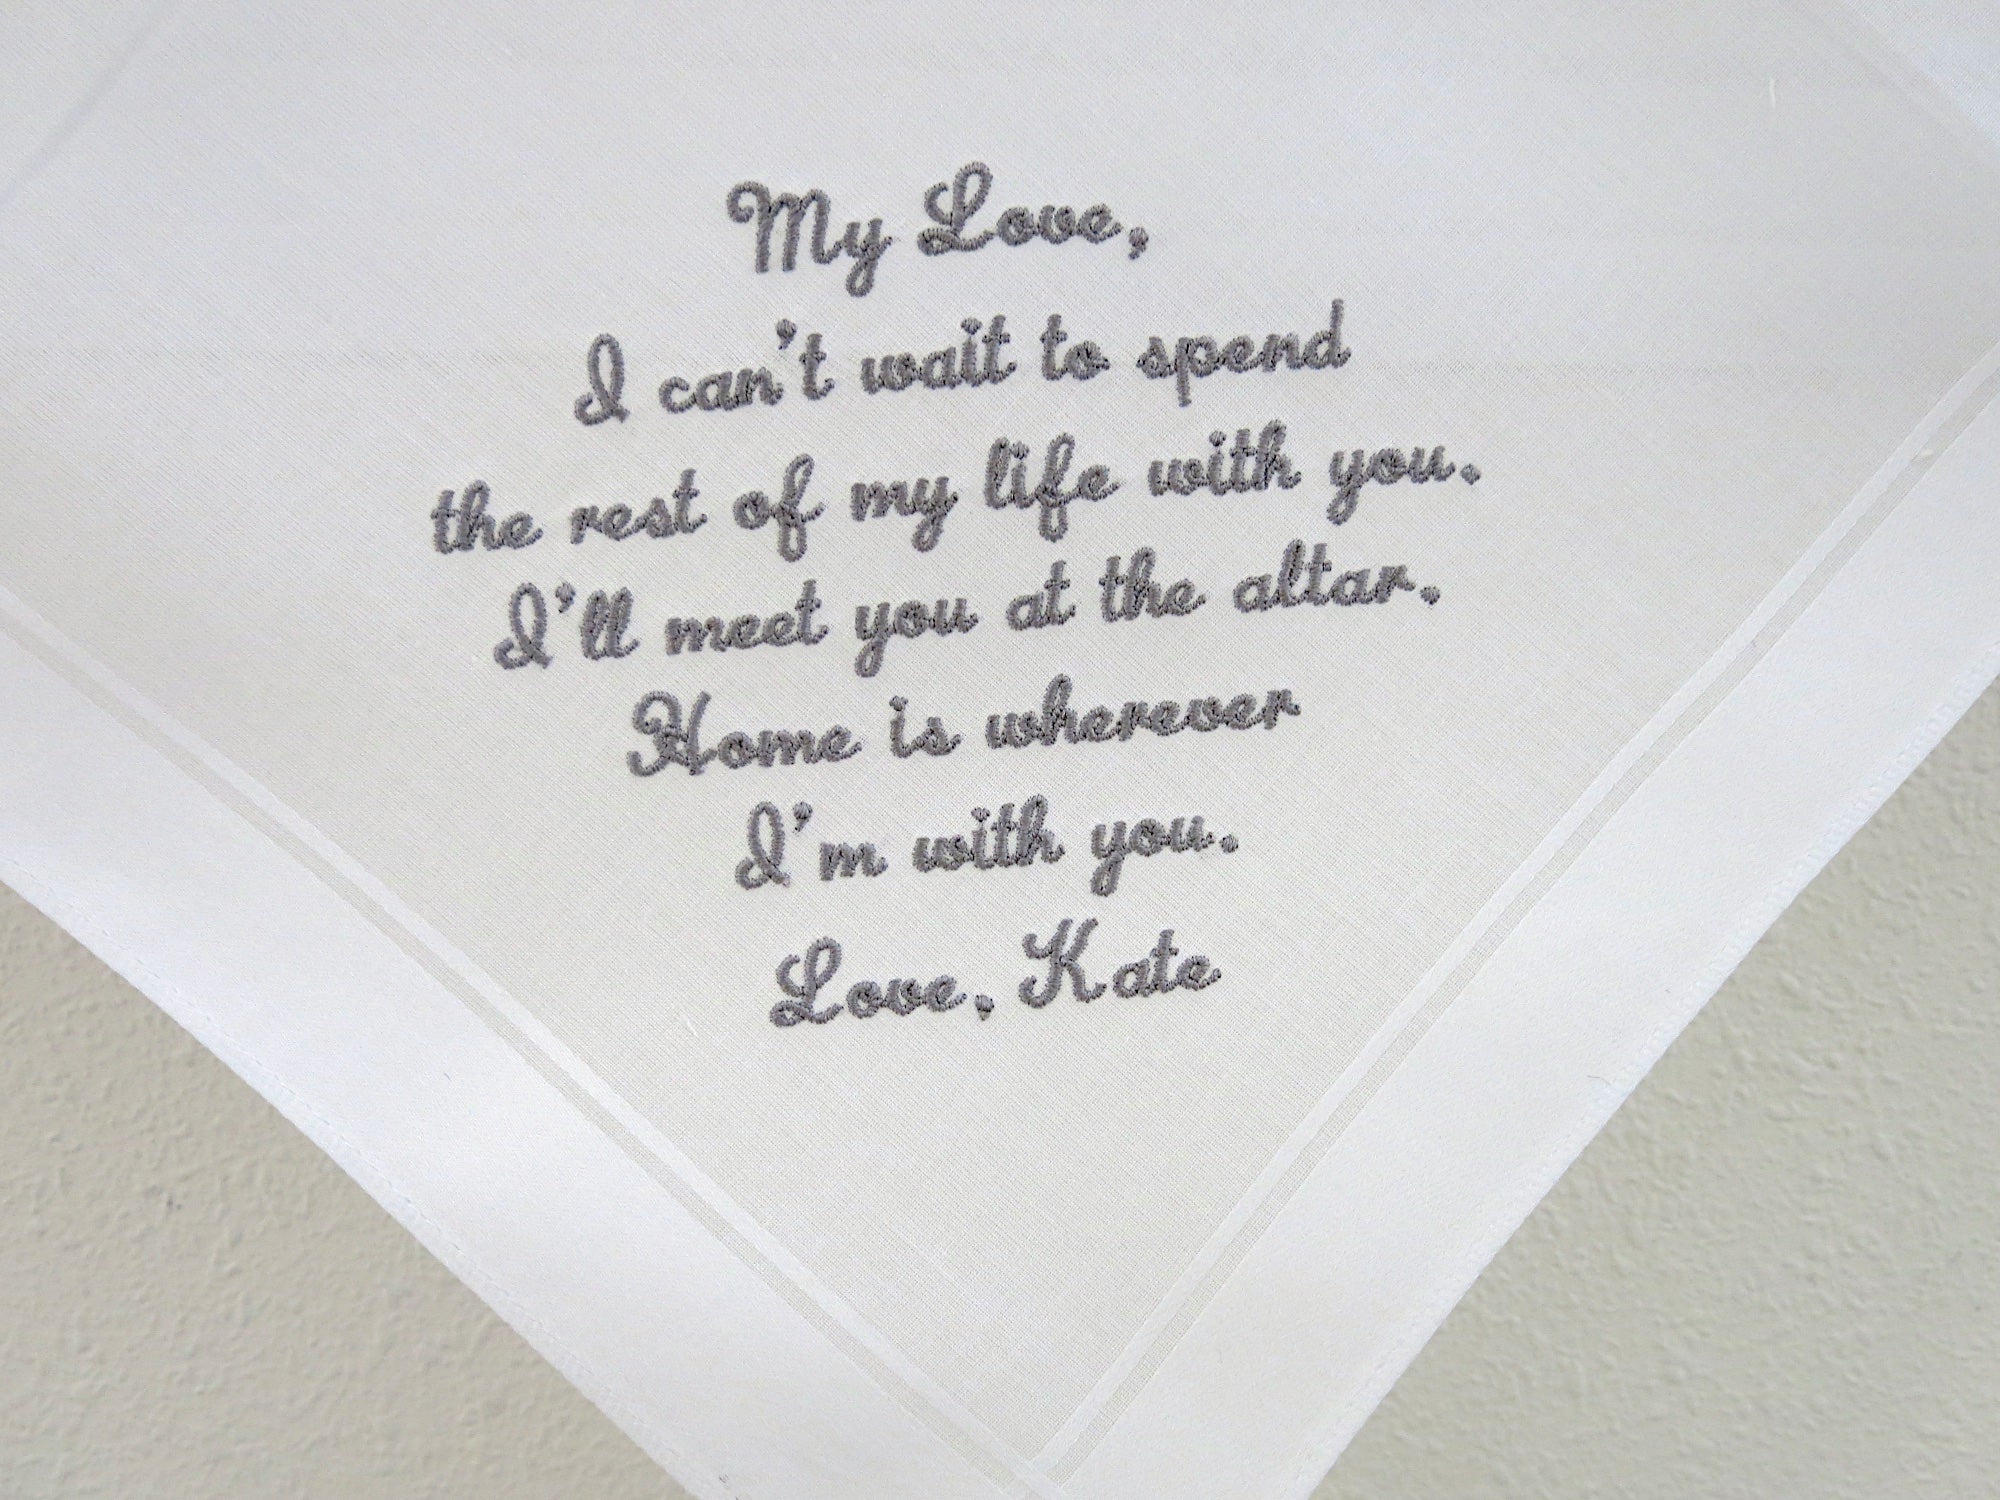 My Love,
I can't wait to spend
the rest of my life with you.
I'll meet you at the altar.
Home is wherever
I'm with you.
Love, Kate